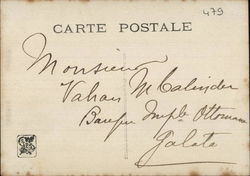 479
CARTE POSTALE
Monsieur
Vahan M Calinder
Banque Imp.le Ottomane
Galata